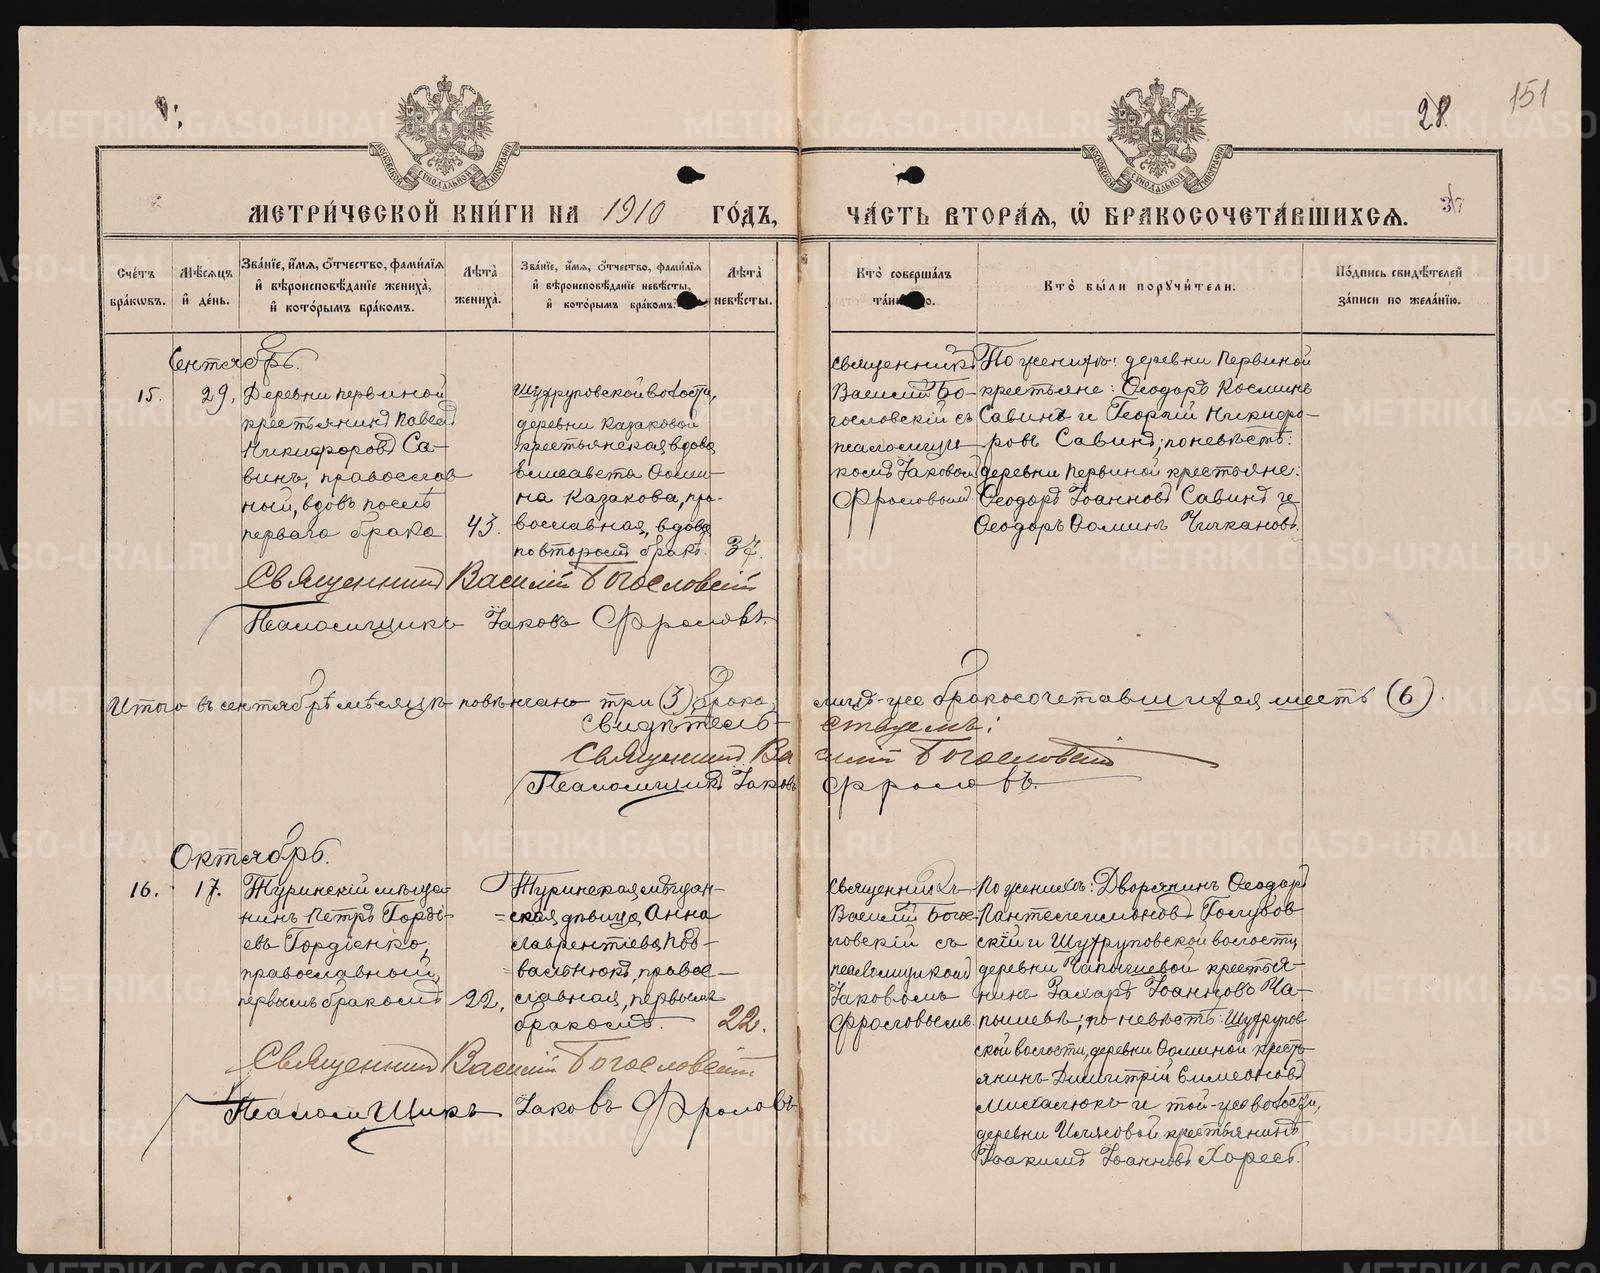 151
28
МЕТРИ́ЧЕСКОЙ КНИ́ГИ НА 1910 ГО́ДЪ,
ЧА́СТЬ ВТОРА́Я, Ѡ҆ БРАКОСОЧЕТА́ВШИХСЯ.
Сче́тъ бра́кѡвъ.
Мѣ́сяцъ и҆ де́нь.
Зва́нїе, и҆́мя, ѻ҆́тчество, фами́лїя
и҆ вѣроисповѣ́данїе жениха̀,
и҆ кото́рымъ бра́комъ.
Лѣта̀ жениха̀.
Зва́нїе, и҆́мя, ѻ҆́тчество, фами́лїя
и҆ вѣроисповѣ́данїе невѣ́сты,
и҆ кото́рымъ бра́комъ.
Лѣта̀ невѣ́сты.
Кто̀ соверша́лъ
Кто̀ бы́ли поручи́тели.
По́дпись свидѣ́телей
за́писи по жела́нїю.
Сентябрь.
15.
29.
Деревни Первиной
крестьянинъ Павелъ
Никифоровъ Са-
винъ, православ
ный, вдовъ послѣ
перваго брака
43.
Шухруповской волости,
деревни Казаковой
крестьянская вдова
Елисавета Ѳоми-
на Казакова, пра-
вославная, вдова
по второмъ бракѣ.
37.
Священникъ
Василій Бо-
гословскій съ
псаломщи
комъ Іаковомъ
Фроловымъ
По женихѣ: деревни Первиной
крестьяне: Ѳеодоръ Косминъ
Савинъ и Георгій Никифо-
ровъ Савинъ; по невѣстѣ:
деревни Первиной крестьяне:
Ѳеодоръ Іоанновъ Савинъ и
Ѳеодоръ Ѳоминъ Чичкановъ.
Священникъ Василій Богословскій
Псаломщикъ Іаковъ Фроловъ.
Итого въ сентябрѣ мѣсяцѣ повѣнчано три (3) брака, лицъ-же бракосочетавшихся шесть (6).
Свидѣтельствуемъ:
Священникъ Василій Богословскій
Псаломщикъ Іаковъ Фроловъ.
Октябрь.
16.
17.
Туринскій мѣща-
нинъ Петръ Горді-
евъ Гордіенко,
православный,
первымъ бракомъ
22.
Туринская мѣщан-
=ская дѣвица Анна
Лаврентіева Под-
вальнюкъ, право-
славная, первымъ
бракомъ.
22.
Священникъ
Василій Бого-
словскій съ
псаломщикомъ
Іаковомъ
Фроловымъ
По женихѣ: Дворянинъ Ѳеодоръ
Пантелеимоновъ Голубов
скій и Шухруповской волости
деревни Чапышевой крестья-
нинъ Захаръ Іоанновъ Ча-
пышевъ; по невѣстѣ: Шухрупов
ской волости, деревни Ѳоминой кресть
янинъ Димитрій Симеоновъ
Михалюкъ и той-же волости,
крестьянинъ
Іоакимъ Іоанновъ
Священникъ Василій Богословскій
Псаломщикъ Іаковъ Фроловъ
METRIKI.GASO-URAL.RU